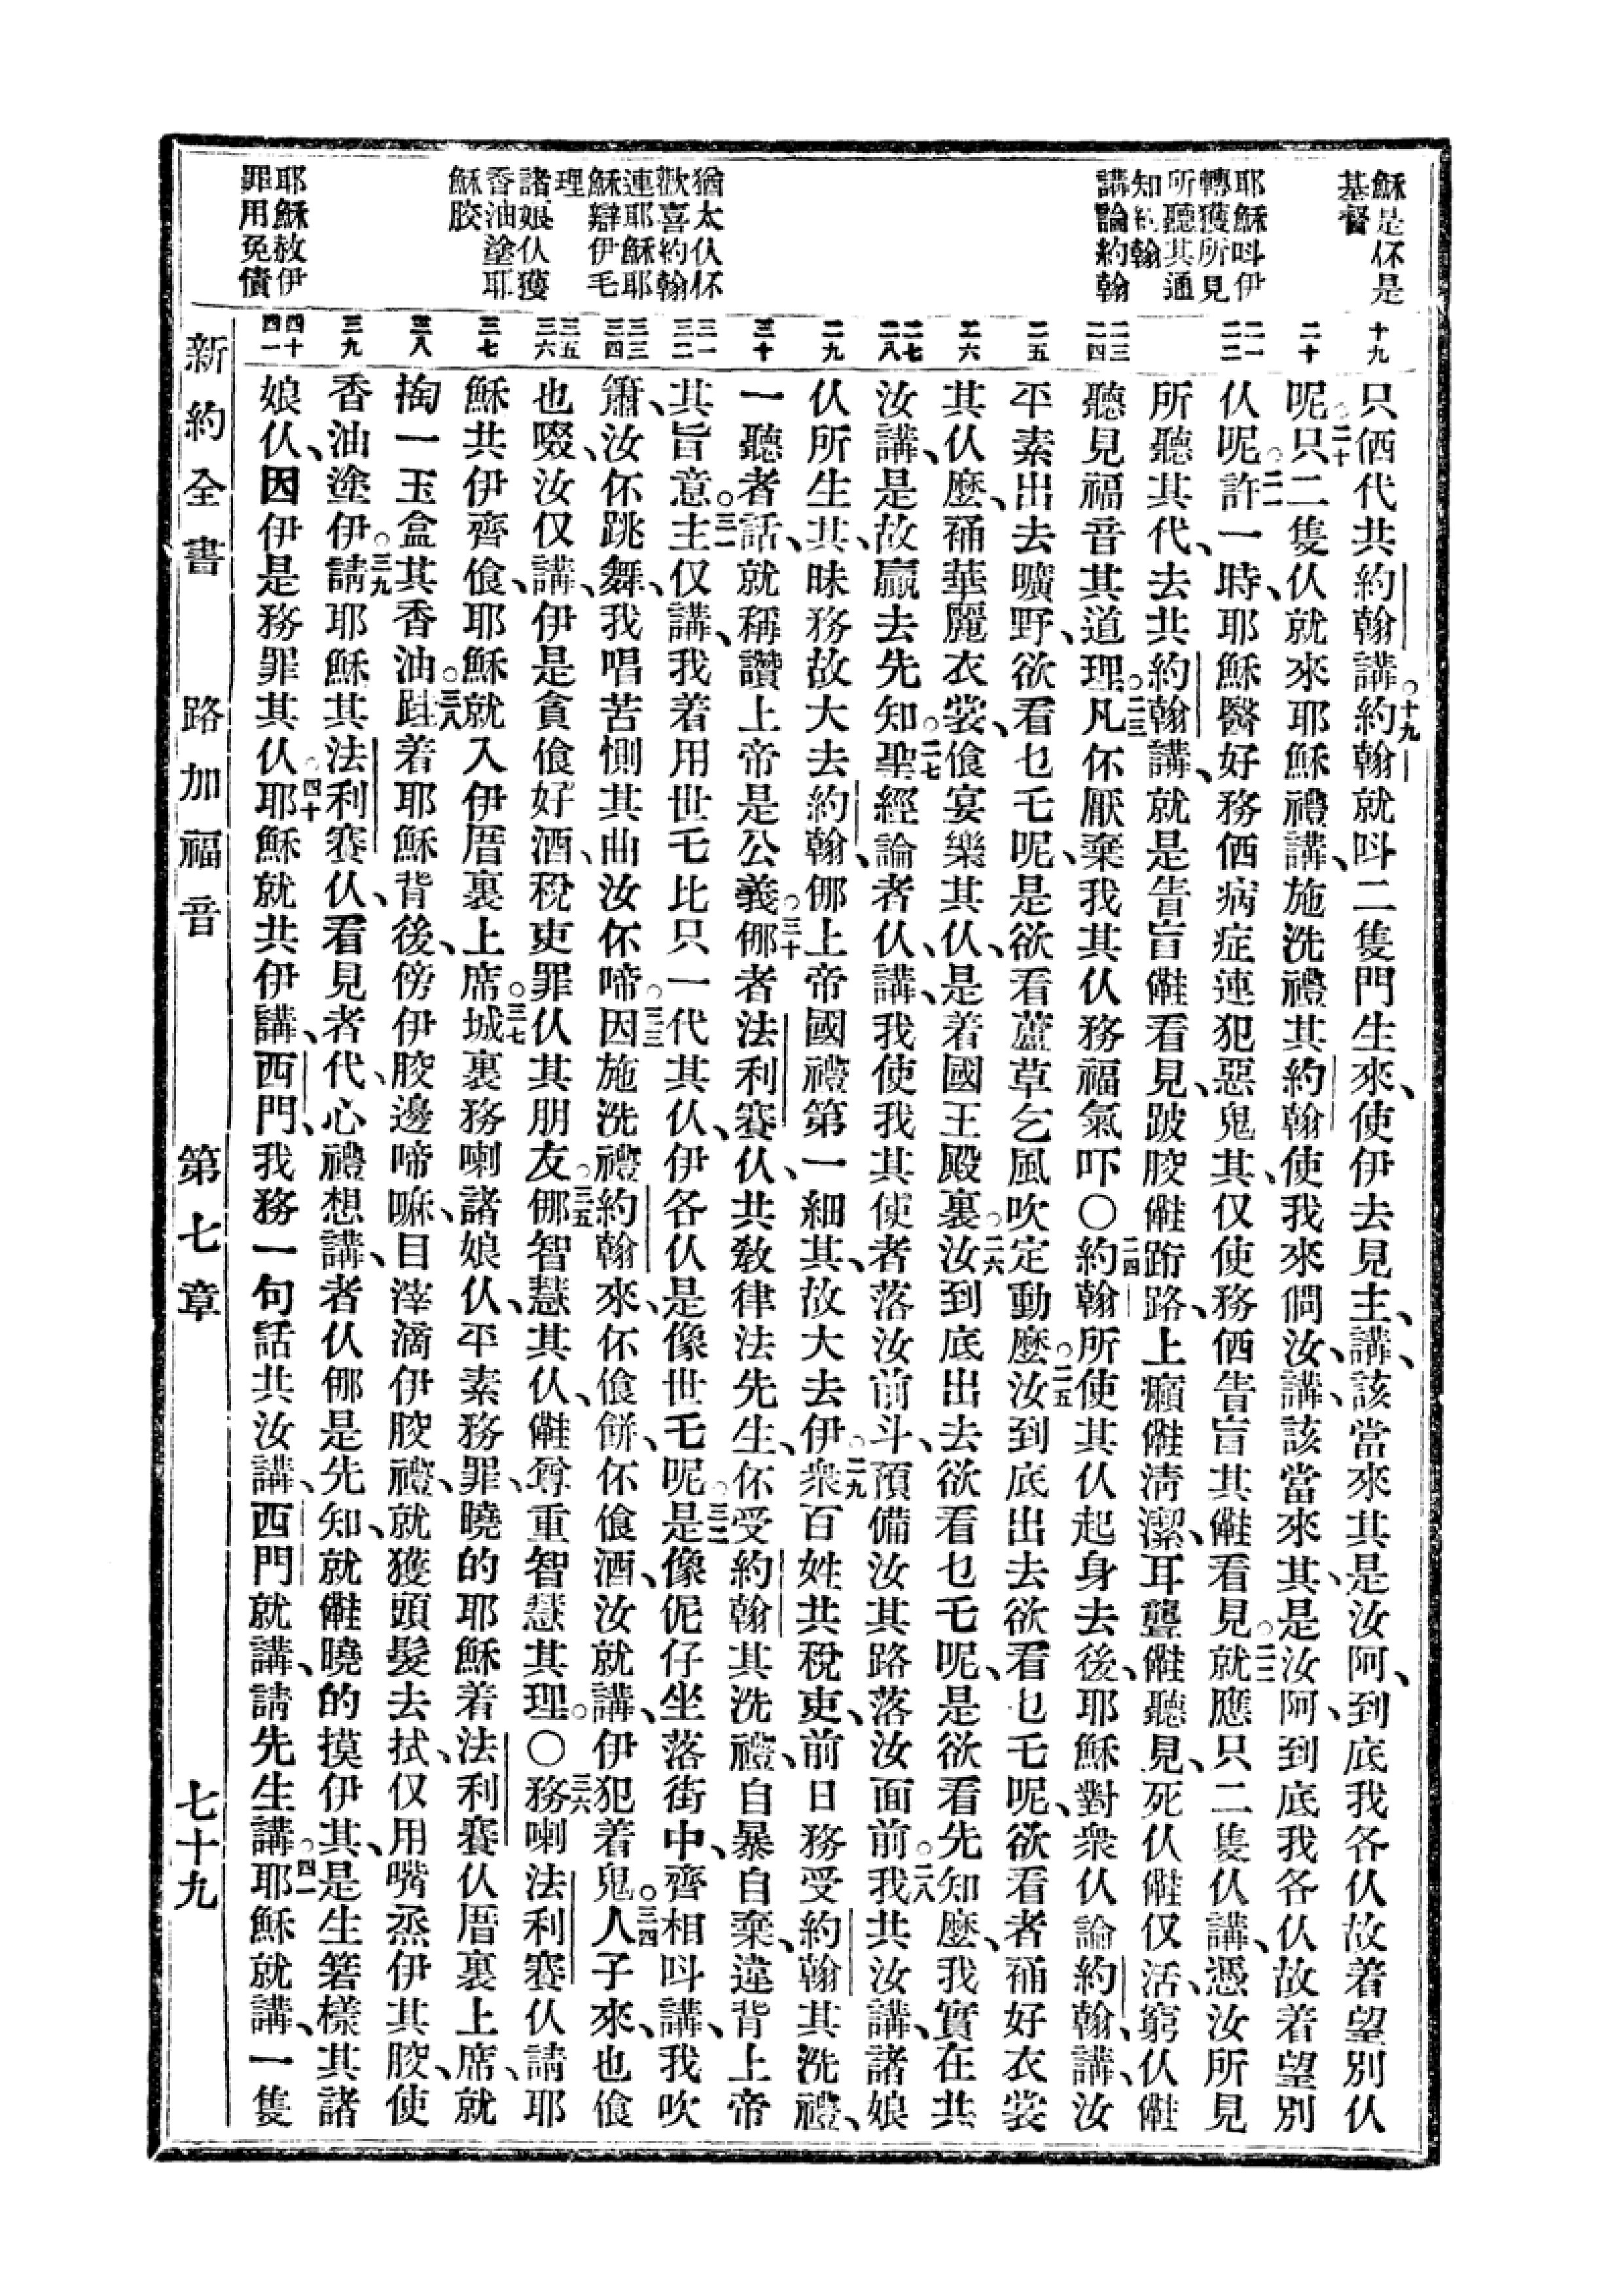 穌是伓是
基督
耶穌呌伊
轉獲所見
所聽其通
知約翰
講論約翰
猶太仈伓
歡喜約翰
連耶穌耶
穌辯伊乇
理
諸娘仈獲
香油塗耶
穌䏢
耶穌赦伊
罪用免債
十九
二十
二一
二二
二三
二四
二五
二六
二七
二八
二九
三十
三一
三二
三三
三四
三五
三六
三七
三八
三九
四十
四一
只㑚代共約翰講○十九約翰就呌二隻門生來、使伊去見主、講、該當來其是汝阿、到底我各仈故着望別仈
呢○二十只二隻仈就來耶穌禮講、施洗禮其約翰使我來問汝、講、該當來其、是汝阿、到底我各仈故着望別
仈呢○二一許一時、耶穌醫好務㑚病症連犯惡鬼其、仅使務㑚眚盲其㒕看見○二二就應只二隻仈講、憑汝所見
所聽其代、去共約翰講、就是眚盲㒕看見、跛䏢㒕䟰路、上癩㒕淸潔、耳聾㒕聽見、死仈㒕仅活、窮仈㒕
聽見福音其道理○二三凡伓厭棄我其仈務福氣吓○二四約翰所使其仈起身去後、耶穌對衆仈論約翰、講、汝
平素出去曠野、欲看乜乇呢、是欲看蘆草乞風吹定動麽○二五汝到底出去欲看乜乇呢、欲看者䘄好衣裳
其仈麽、䘄華麗衣裳、飡宴樂其仈、是着國王殿裏○二六汝到底出去欲看乜乇呢、是欲看先知麽、我實在共
汝講、是故贏去先知○二七聖經論者仈、講、我使我其使者落汝前斗、預備汝其路落汝面前○二八我共汝講、諸娘
仈所生其、昧務故大去約翰、㑚上帝國禮第一細其、故大去伊○二九衆百姓共稅吏、前日務受約翰其洗禮、
一聽者話、就稱讚上帝是公義○三十㑚者法利賽仈、共教律法先生、伓受約翰其洗禮、自暴自棄、違背上帝
其旨意○三一主仅講、我着用世乇比只一代其仈、伊各仈是像世乇呢○三二是像伲仔坐落街中、齊相呌講、我吹
簫、汝伓跳舞、我唱苦惻其曲汝伓啼○三三因施洗禮約翰來、伓飡餅、伓飡酒、汝就講、伊犯着鬼○三四人子來、也飡
也啜、汝仅講、伊是貪飡好酒、稅吏罪仈其朋友○三五㑚智慧其仈、㒕尊重智慧其理○○三六務喇法利賽仈請耶
穌共伊齊飡、耶穌就入伊厝裏上席○三七城裏務喇諸娘仈、平素務罪、曉的耶穌着法利賽仈厝裏上席、就
掏一玉盒其香油○三八跬着耶穌背後、傍伊䏢邊啼嘛、目滓滴伊䏢禮、就獲頭髮去拭、仅用嘴烝伊其䏢、使
香油塗伊○三九請耶穌其法利賽仈、看見者代、心禮想講、者仈㑚是先知、就㒕曉的摸伊其、是生箬樣其諸
娘仈、因伊是務罪其仈○四十耶穌就共伊講、西門、我務一句話共汝講、西門就講、請先生講○四一耶穌就講、一隻
新約全書
路加福音
第七章
七十九